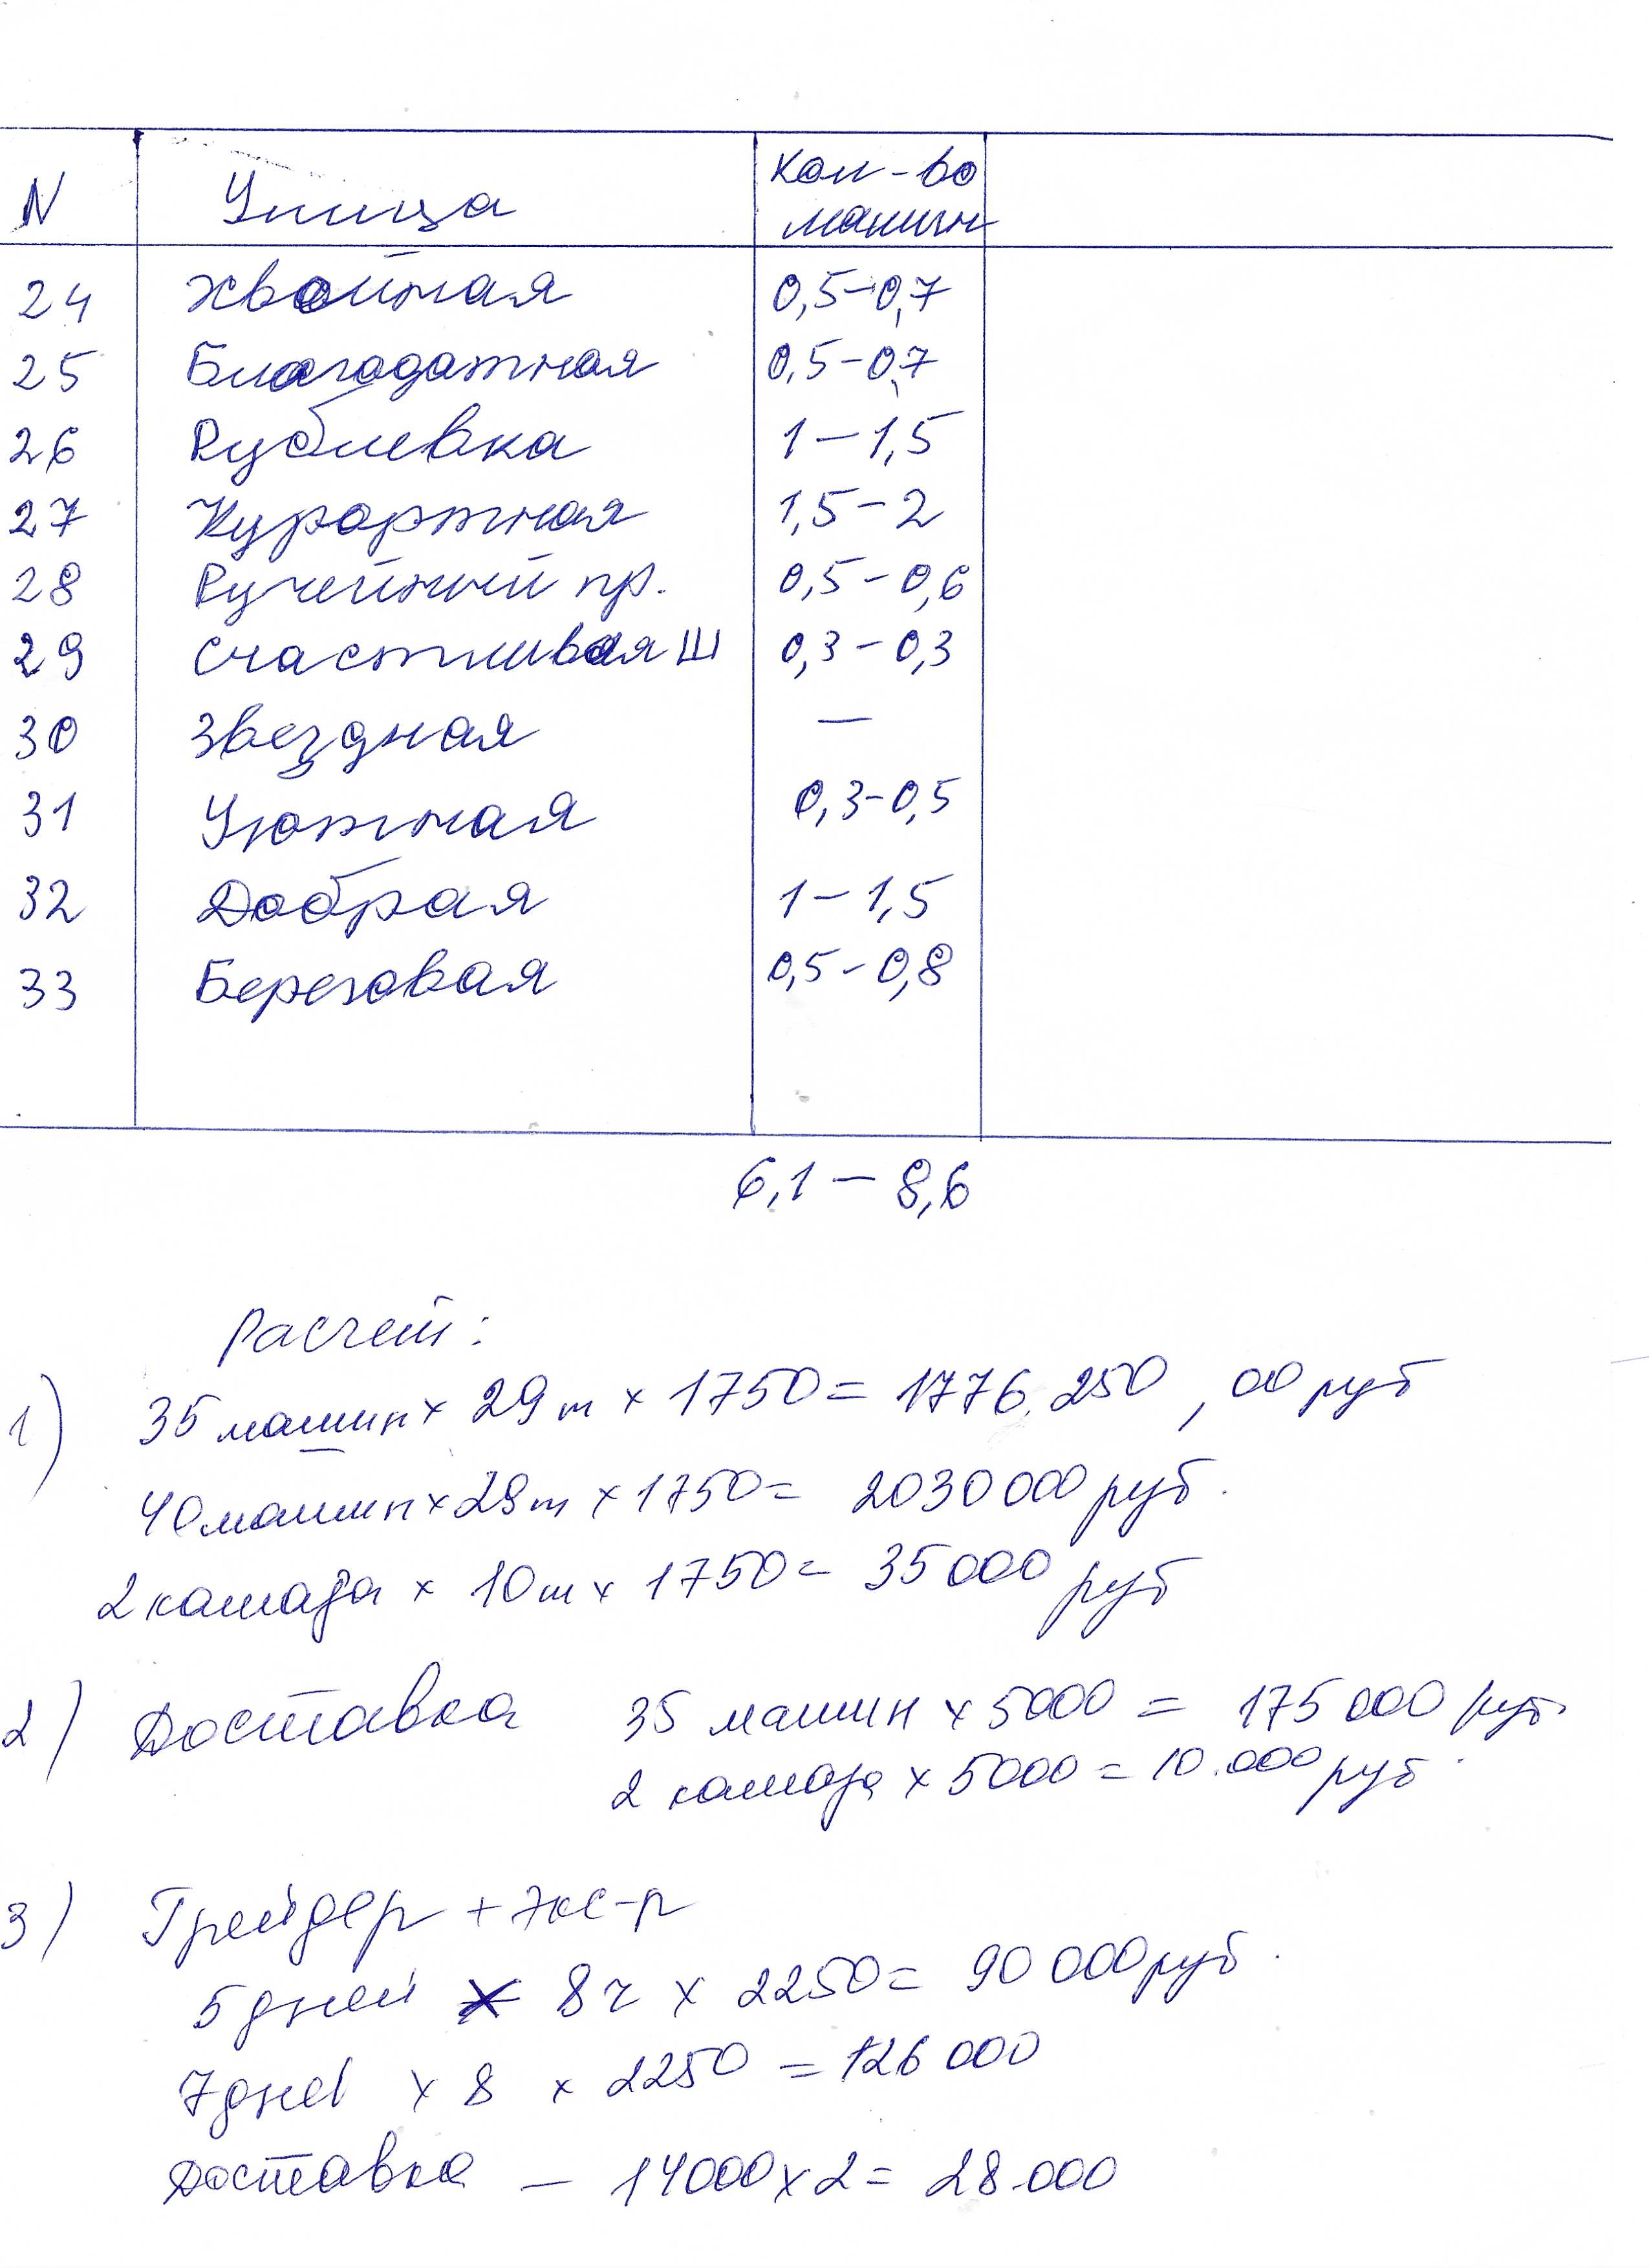 N Улица Кол-во машин
24 Хвойная 0,5-0,7
25 Благодатная 0,5-0,7
26 Рублевка 1-1,5
27 Курортная 1,5-2
28 Ручейный пр. 0,5-0,6
29 Счастливая III 0,3-0,3
30 Звездная —
31 Уютная 0,3-0,5
32 Добрая 1-1,5
33 Березовая 0,5-0,8
6,1 - 8,6
Расчет:
1) 35 машин × 29т × 1750 = 1776.250,00 руб
40 машин × 29т × 1750 = 2030000 руб.
2 камаза × 10т × 1750 = 35000 руб
2) Доставка 35 машин × 5000 = 175000 руб.
2 камаза × 5000 = 10.000 руб.
3) Грейдер + экс-р
5 дней × 8ч × 2250 = 90000 руб.
7 дней × 8 × 2250 = 126000
Доставка - 14000 × 2 = 28.000